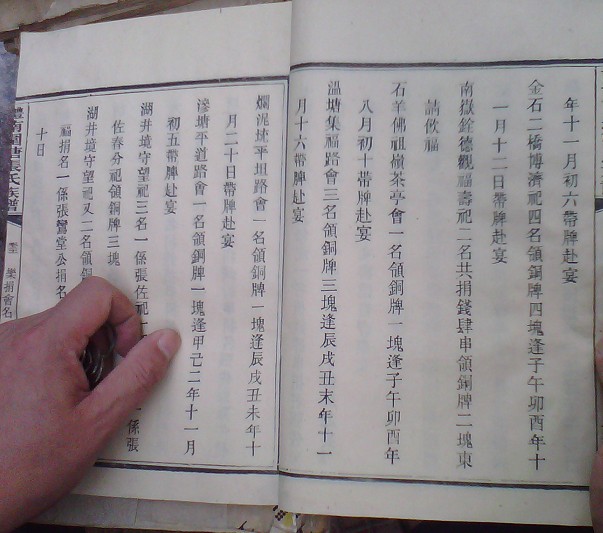 年十一月初六帶牌赴宴
金石二橋博濟祀四名領銅牌四塊逢子午卯酉年十
一月十二日帶牌赴宴
南嶽銓德觀福壽祀二名共捐錢肆串領銅牌二塊東
請飲福
石羊佛祖嶺茶亭會一名領銅牌一塊逢子午卯酉年
八月初十帶牌赴宴
溫塘集福路會三名領銅牌三塊逢辰戌丑末年十一
月十六帶牌赴宴
爛泥坳平垣路會一名領銅牌一塊逢辰戌丑未年十
月二十日帶牌赴宴
滲塘平道路會一名領銅牌一塊逢甲己二年十一月
初五帶牌赴宴
湖井境守望祀三名一係張佐祀一
一係張
佐春分祀領銅牌三塊
湖井境守望祀又二名領銅
福捐名一係張鸞堂公捐名
十日
醴南 塘張氏族譜
樂捐會名